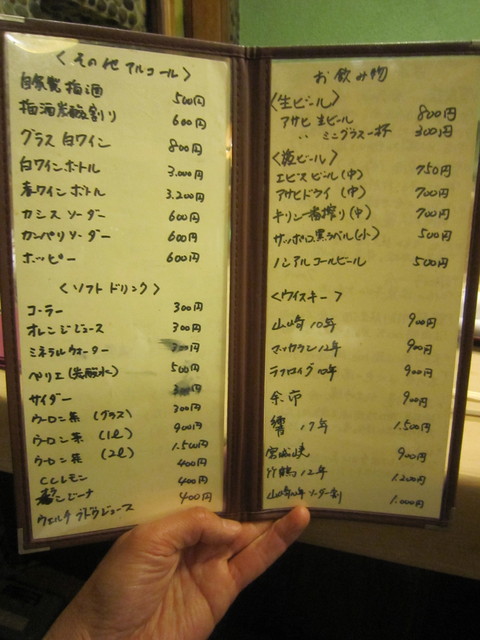 〈その他アルコール〉
自家製梅酒 500円
梅酒炭酸割り 600円
グラス白ワイン 800円
白ワインボトル 3.000円
赤ワインボトル 3.200円
カシスソーダー 600円
カンパリソーダー 600円
ホッピー 600円
〈ソフトドリンク〉
コーラー 300円
オレンジジュース 300円
ミネラルウォーター 300円
ペリエ(炭酸水) 500円
サイダー 300円
ウーロン茶 (グラス) 300円
ウーロン茶 (1ℓ) 900円
ウーロン茶 (2ℓ) 1.500円
CCレモン 400円
オランジーナ 400円
ウェルチブドウジュース 400円
お飲み物
〈生ビール〉
アサヒ生ビール 800円
〃 ミニグラス一杯 300円
〈瓶ビール〉
エビスビール(中) 750円
アサヒドライ(中) 700円
キリン一番搾り(中) 700円
サッポロ黒ラベル(小) 500円
ノンアルコールビール 500円
〈ウイスキー〉
山崎10年 900円
マッカラン12年 900円
ラフロイグ10年 900円
余市 900円
響 17年 1.500円
宮城峡 900円
竹鶴12年 1.200円
山崎10年ソーダ割 1.000円